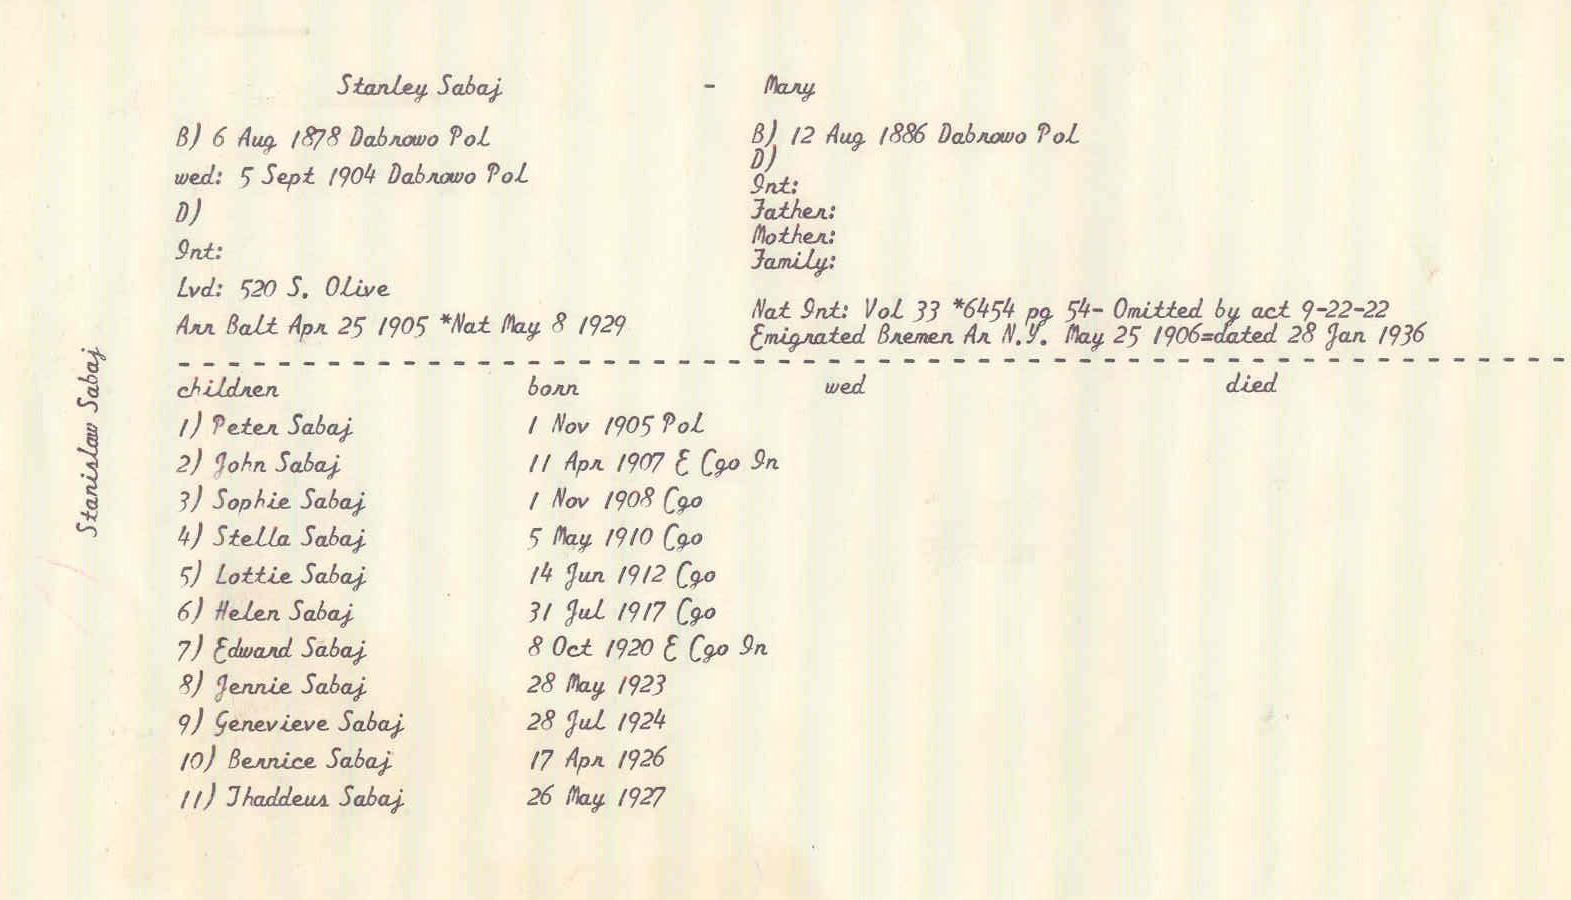 Stanislaw Sabaj
Stanley Sabaj - Mary
B) 6 Aug 1878 Dabrowo Pol
wed: 5 Sept 1904 Dabrowo Pol
D)
Int:
Lvd: 520 S. Olive
Arr Balt Apr 25 1905 *Nat May 8 1929
B) 12 Aug 1886 Dabrowo Pol
D)
Int:
Father:
Mother:
Family:
Nat Int: Vol 33 *6454 pg 54- Omitted by act 9-22-22
Emigrated Bremen Ar N.Y. May 25 1906=dated 28 Jan 1936
children born wed died
1) Peter Sabaj 1 Nov 1905 Pol
2) John Sabaj 11 Apr 1907 E Cgo In
3) Sophie Sabaj 1 Nov 1908 Cgo
4) Stella Sabaj 5 May 1910 Cgo
5) Lottie Sabaj 14 Jun 1912 Cgo
6) Helen Sabaj 31 Jul 1917 Cgo
7) Edward Sabaj 8 Oct 1920 E Cgo In
8) Jennie Sabaj 28 May 1923
9) Genevieve Sabaj 28 Jul 1924
10) Bernice Sabaj 17 Apr 1926
11) Thaddeus Sabaj 26 May 1927